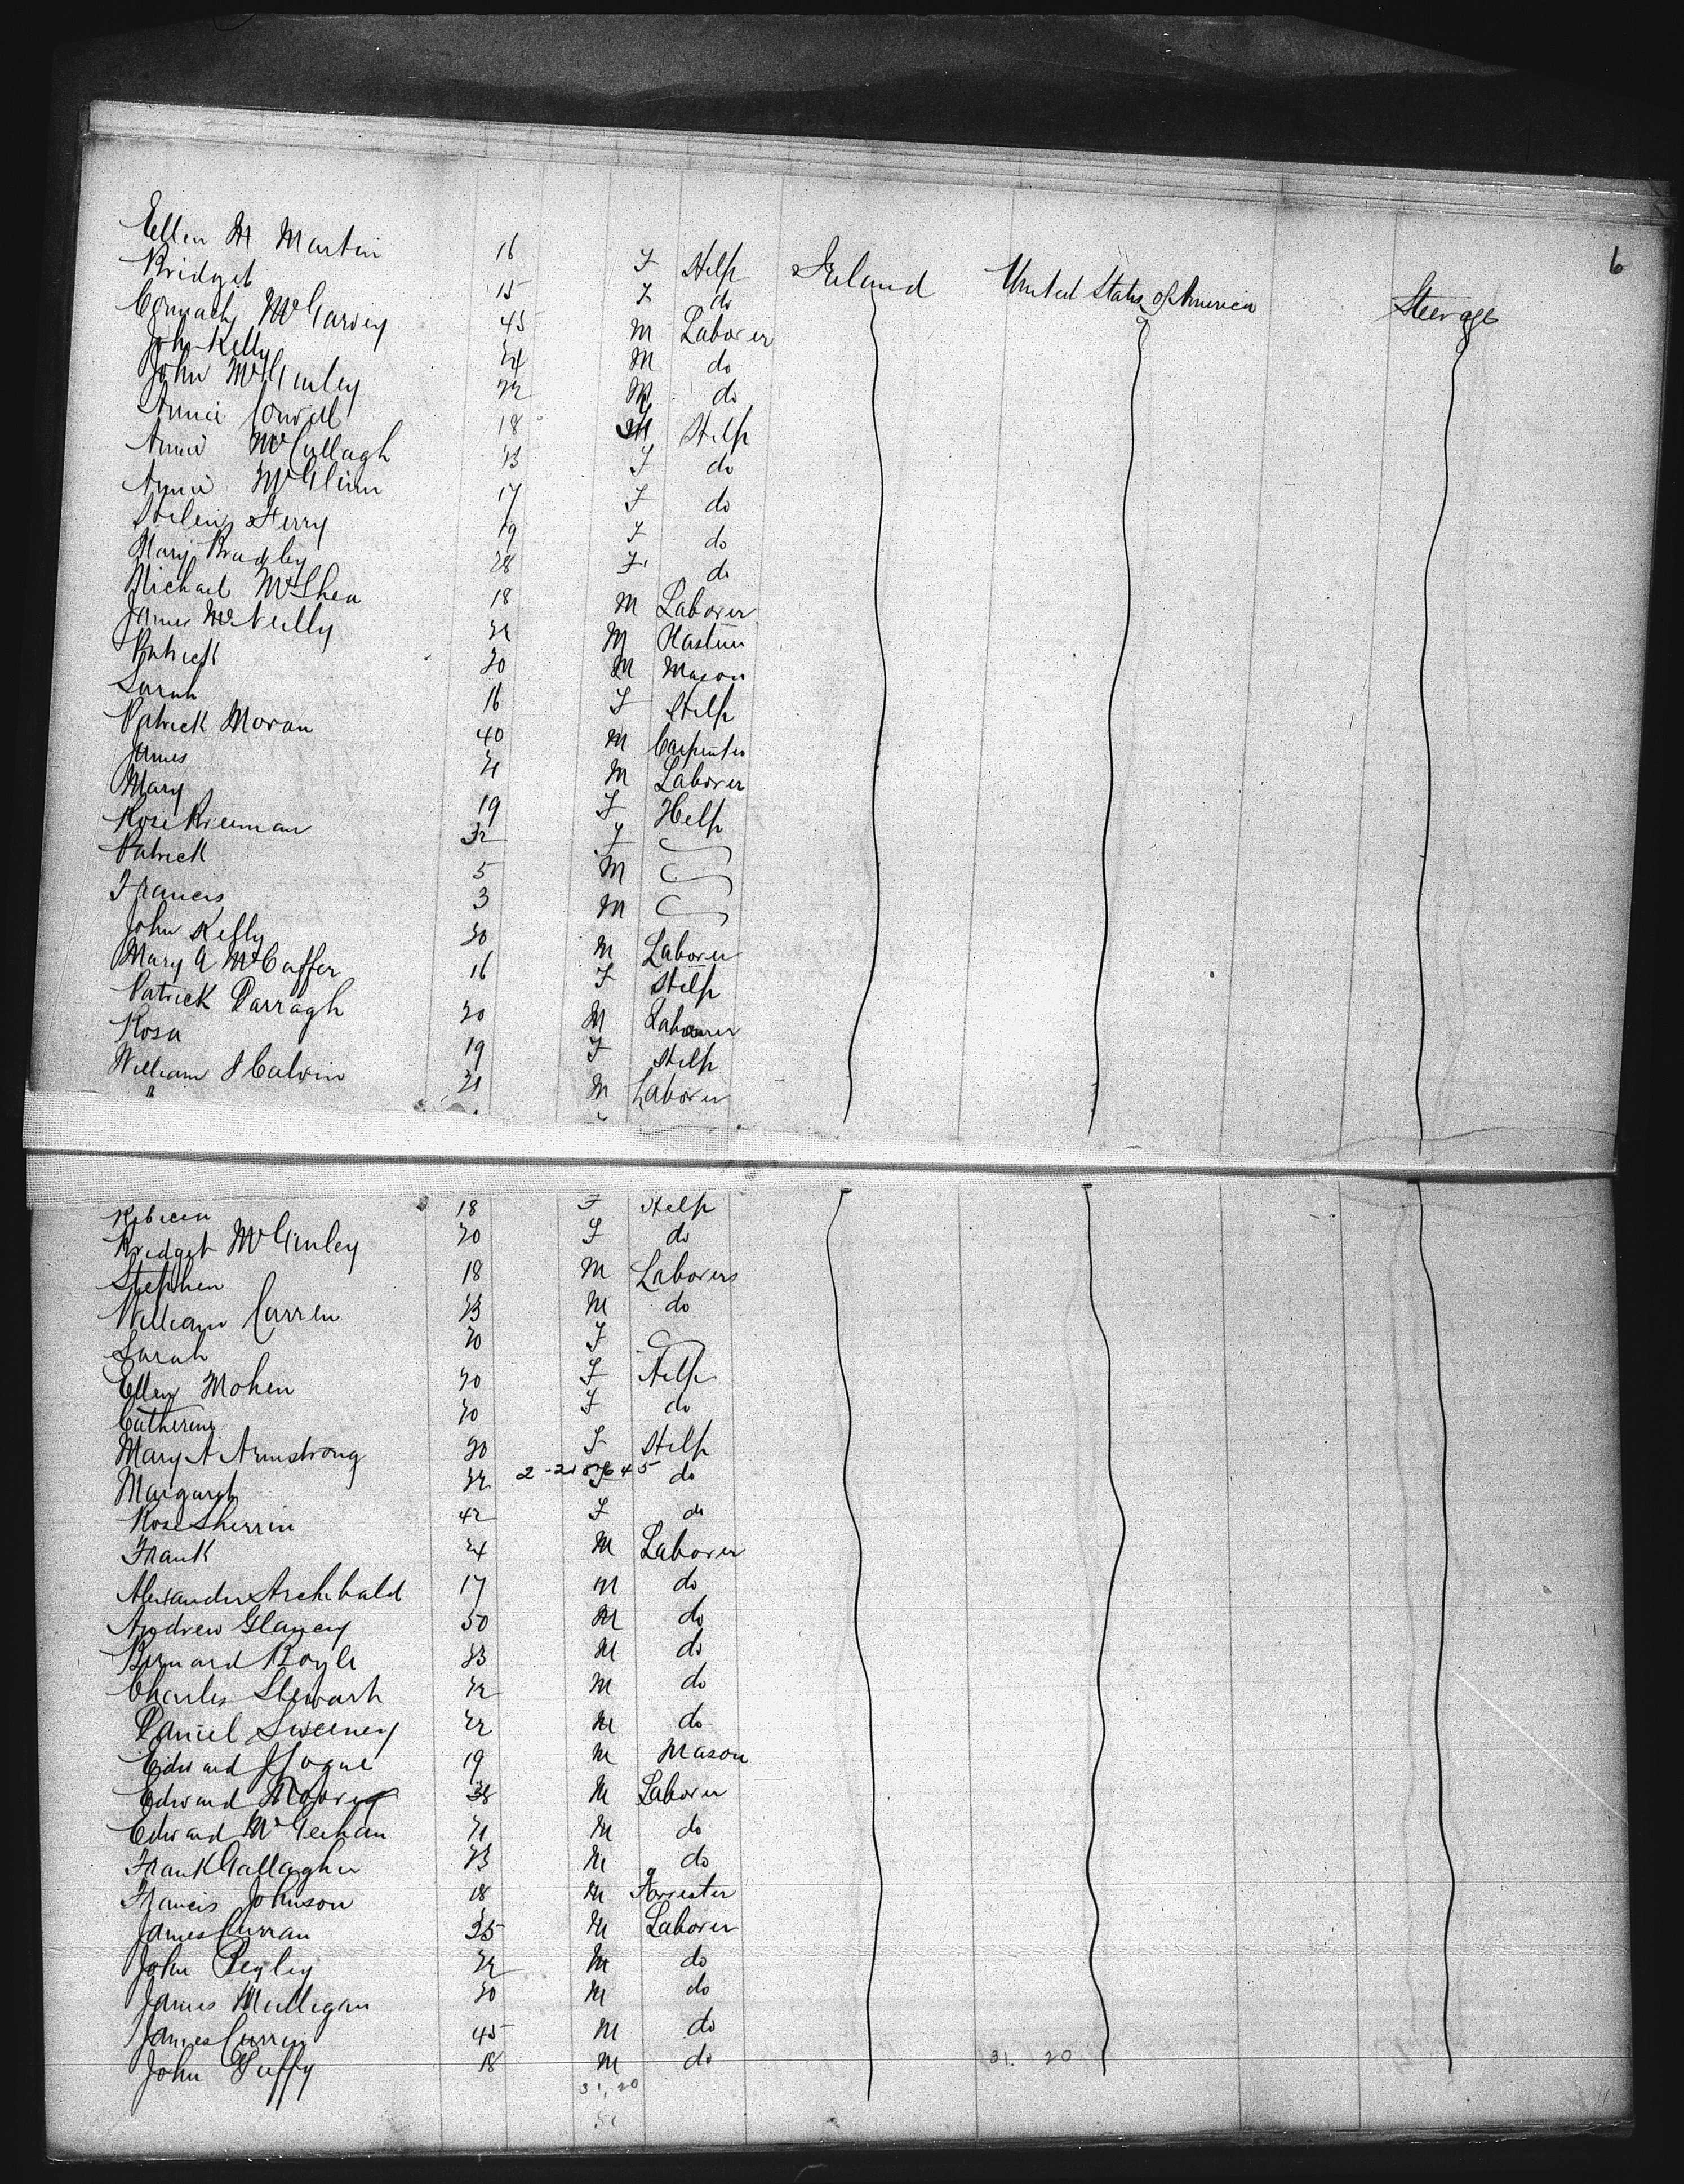 6
Ellen M Martin 16 F Help Ireland United States of America Steerage
Bridget 15 F do
Cormack McGarvey 45 M Laborer
John Kelly 24 M do
John McGinley 22 M do
Annie 18 Help
Annie McCullagh 23 F do
Annie McGlinn 17 F do
Helen Ferry 19 F do
Mary Bradley 28 F do
Michael McShea 18 M Laborer
James McNulty 21 M
Patrick 20 M Mason
Sarah 16 F Help
Patrick Moran 40 M Carpenter
James 21 M Laborer
Mary 19 F Help
Rose Kiernan 32 F
Patrick 5 M
Francis 3 M
John Kelly 20 M Laborer
Mary A McCaffer 16 F Help
Patrick Darragh 20 M Laborer
Rosa 19 F Help
William J Calvin 21 M Laborer
Rebecca 18 F Help
Bridget McGinley 20 F do
Stephen 18 M Laborers
William Curren 23 M do
Sarah 20 F
Ellen Mohen 20 F Help
Catherine 20 F do
Mary A Armstrong 20 F Help
Margaret 22 F do
Rose Sherrin 42 F do
Frank 24 M Laborer
Alexander Archibald 17 M do
Andrew Glancy 50 M do
Bernard Boyle 23 M do
Charles Stewart 22 M do
Daniel Sweeney 22 M do
Edward Logue 19 M Mason
Edward 38 M Laborer
Edward McGeehan 21 M do
Frank Gallagher 23 M do
Francis Johnson 18 M
James Curran 35 M Laborer
John 22 M do
James Mulligan 20 M do
James Curren 45 M do
John Duffy 18 M do
31. 20
31, 20